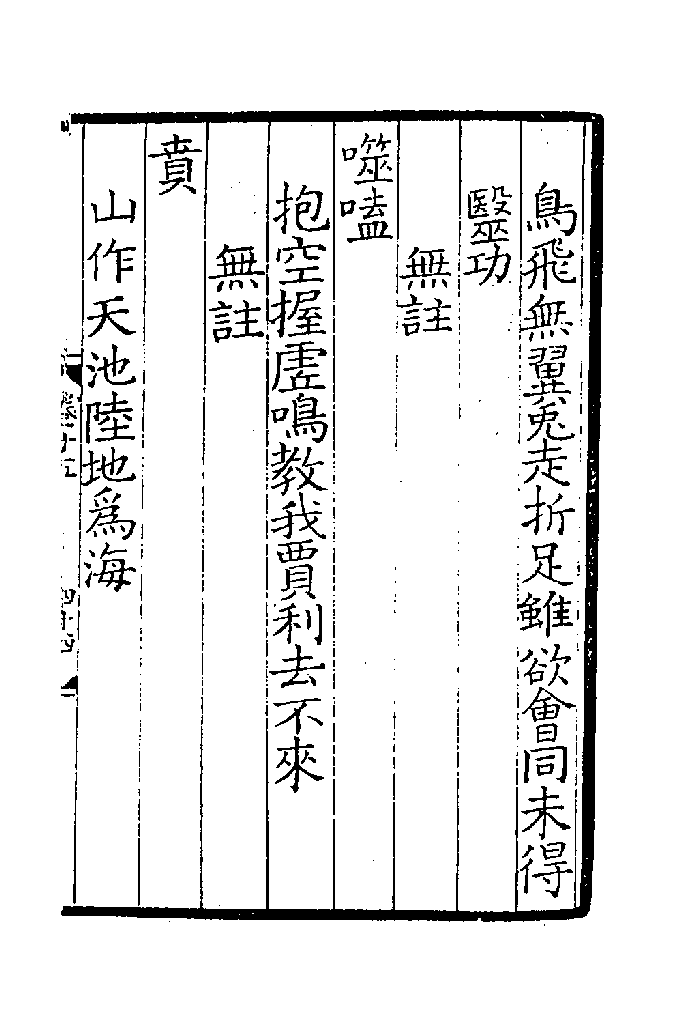 鳥飛無翼兎走折足雖欲會同未得
醫巫功
無註
噬嗑
抱空握虛鳴教我賈利去不來
無註
賁
山作天池陸地爲海
卷十五
四十四